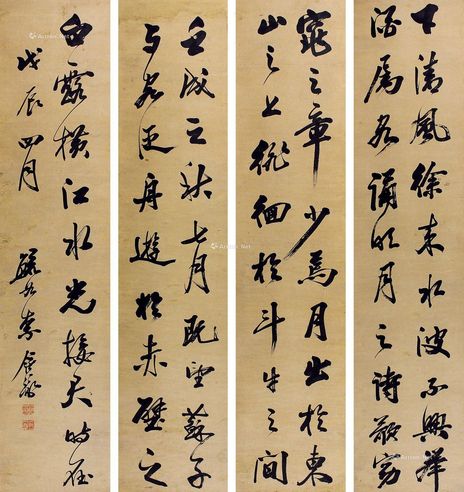 下清風徐来水波不興舉
酒属客誦明月之詩歌窈
窕之章少焉月出於東
山之上徘徊於斗牛之間
壬戌之秋七月既望蘇子
与客泛舟遊於赤壁之
白露横江水光接天時在
戊辰四月
Artron.Net
Artron.Net
Artron.Net